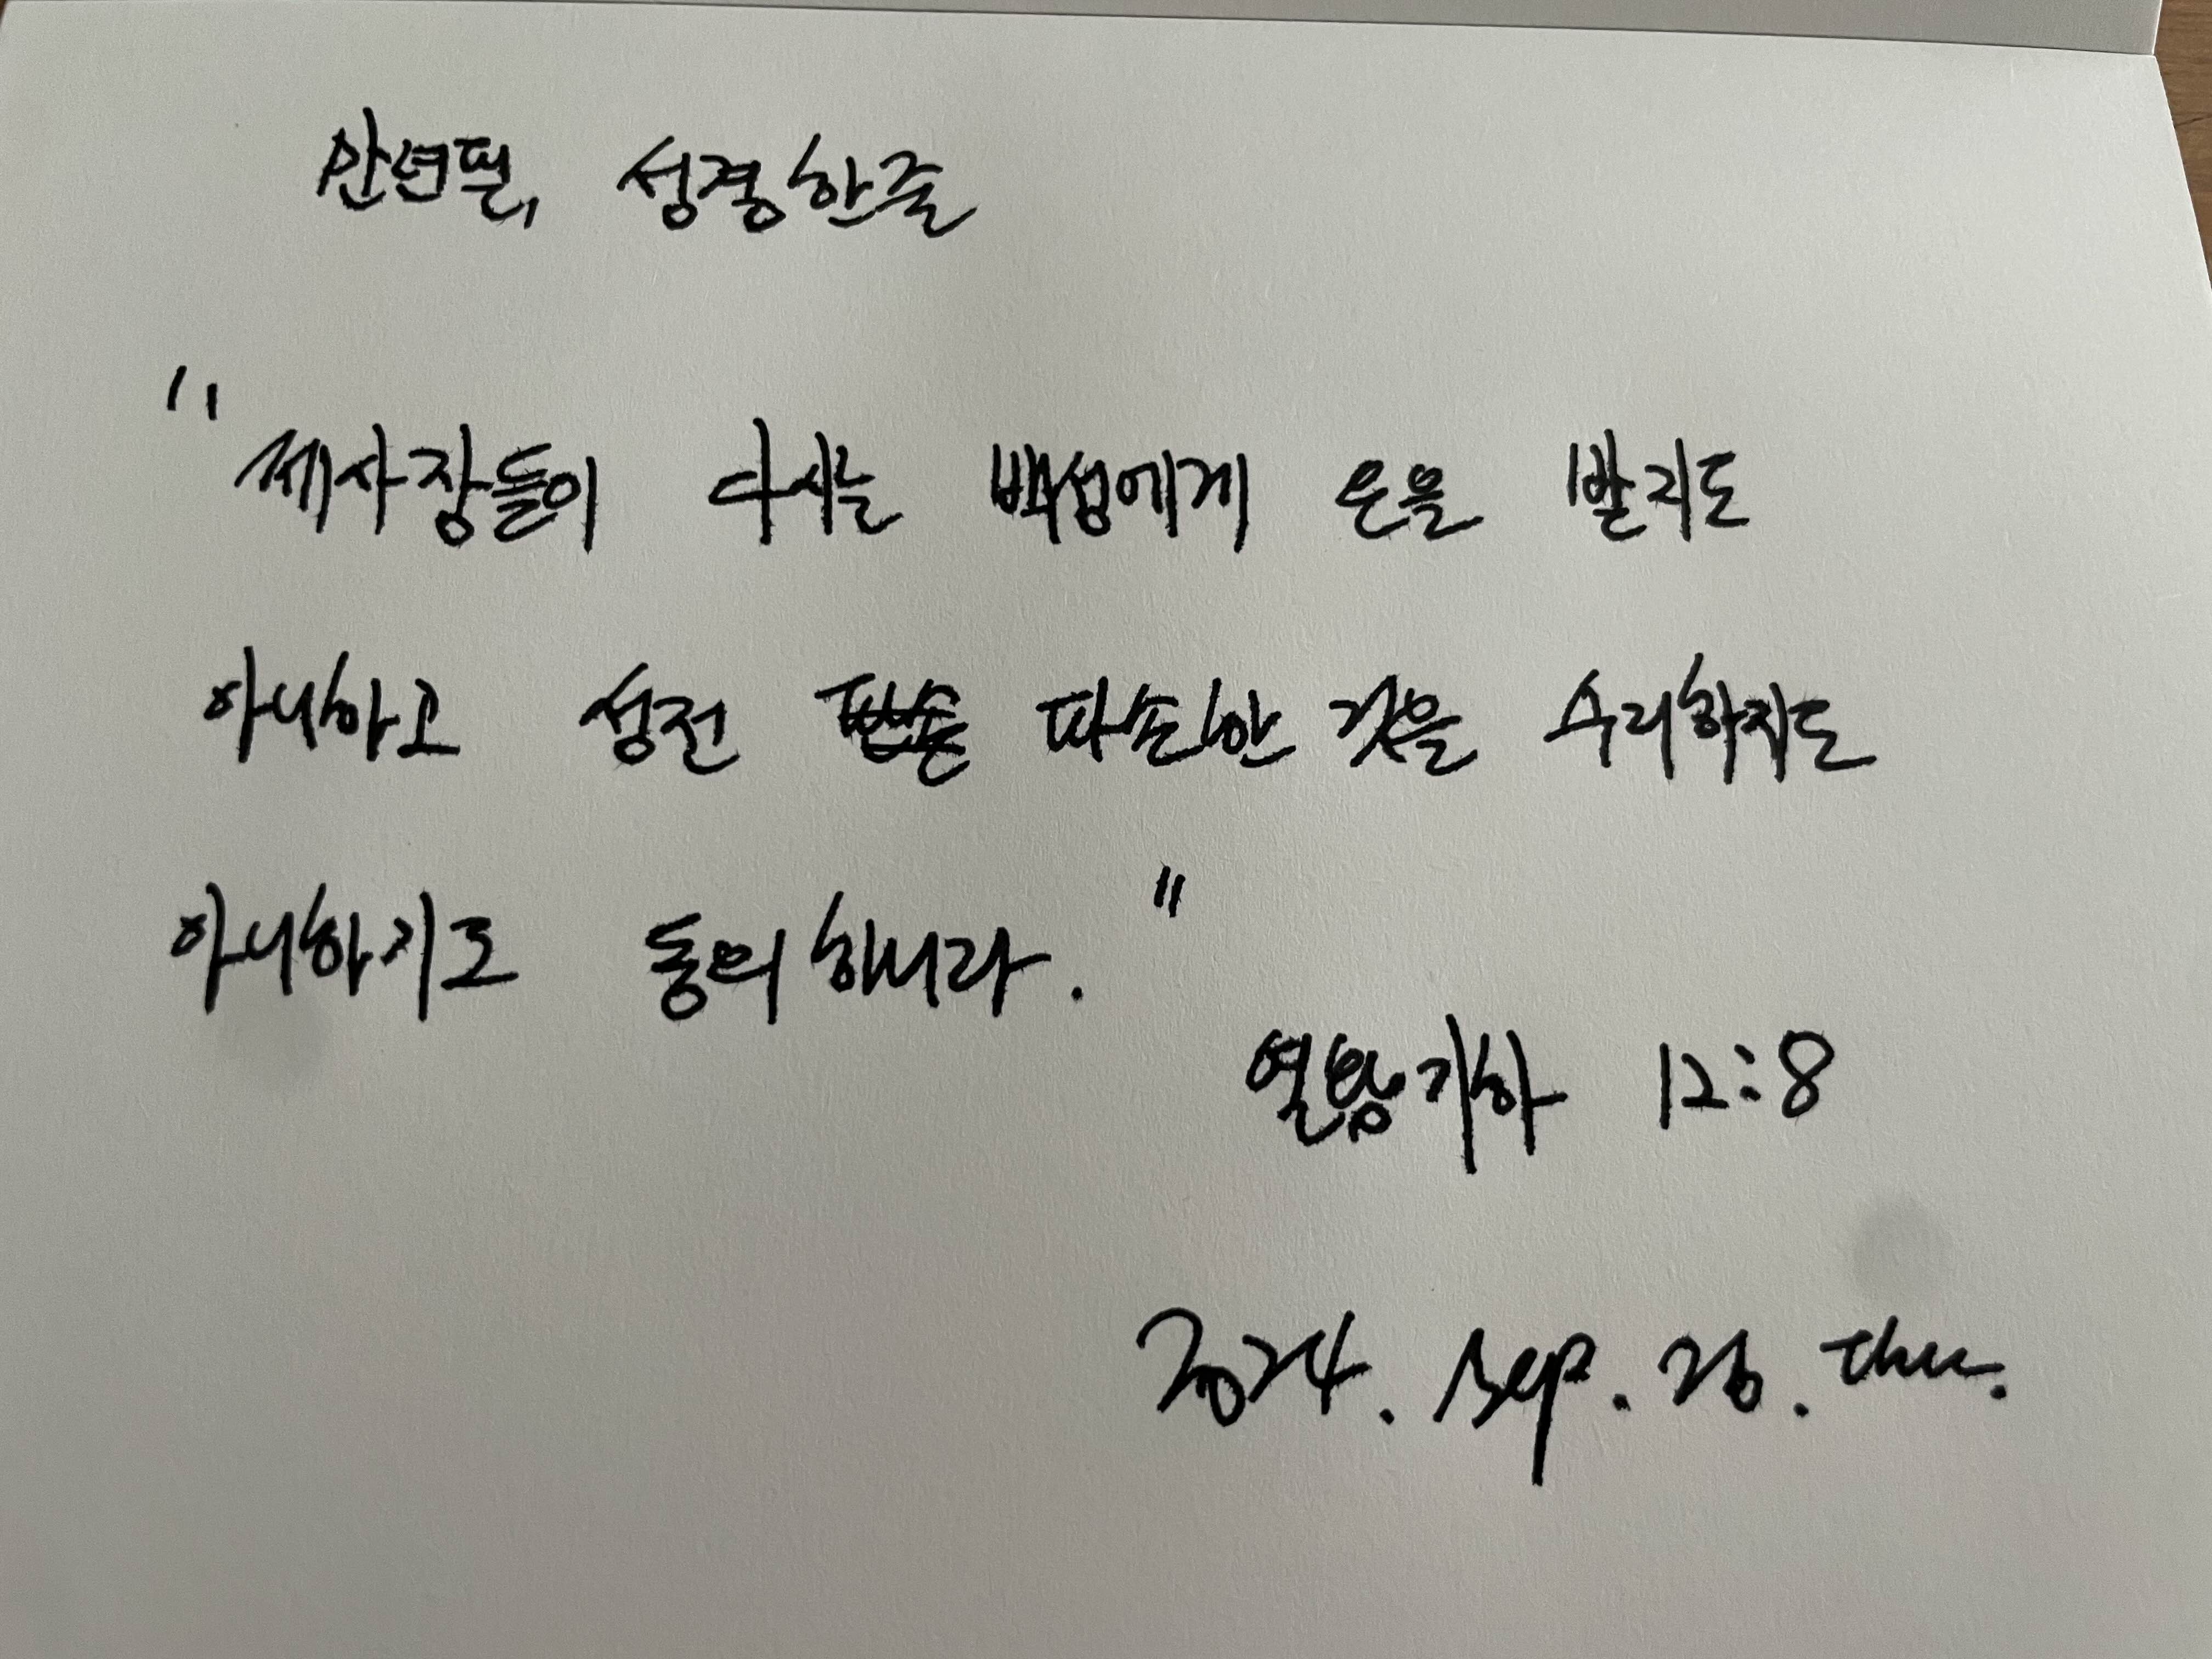 만년필, 성경한줄
"제사장들이 다시는 백성에게 은을 받지도
아니하고 성전 파손한 것을 수리하지도
아니하기도 동의하니라."
열왕기하 12:8
2024. Sep. 26. Thu.